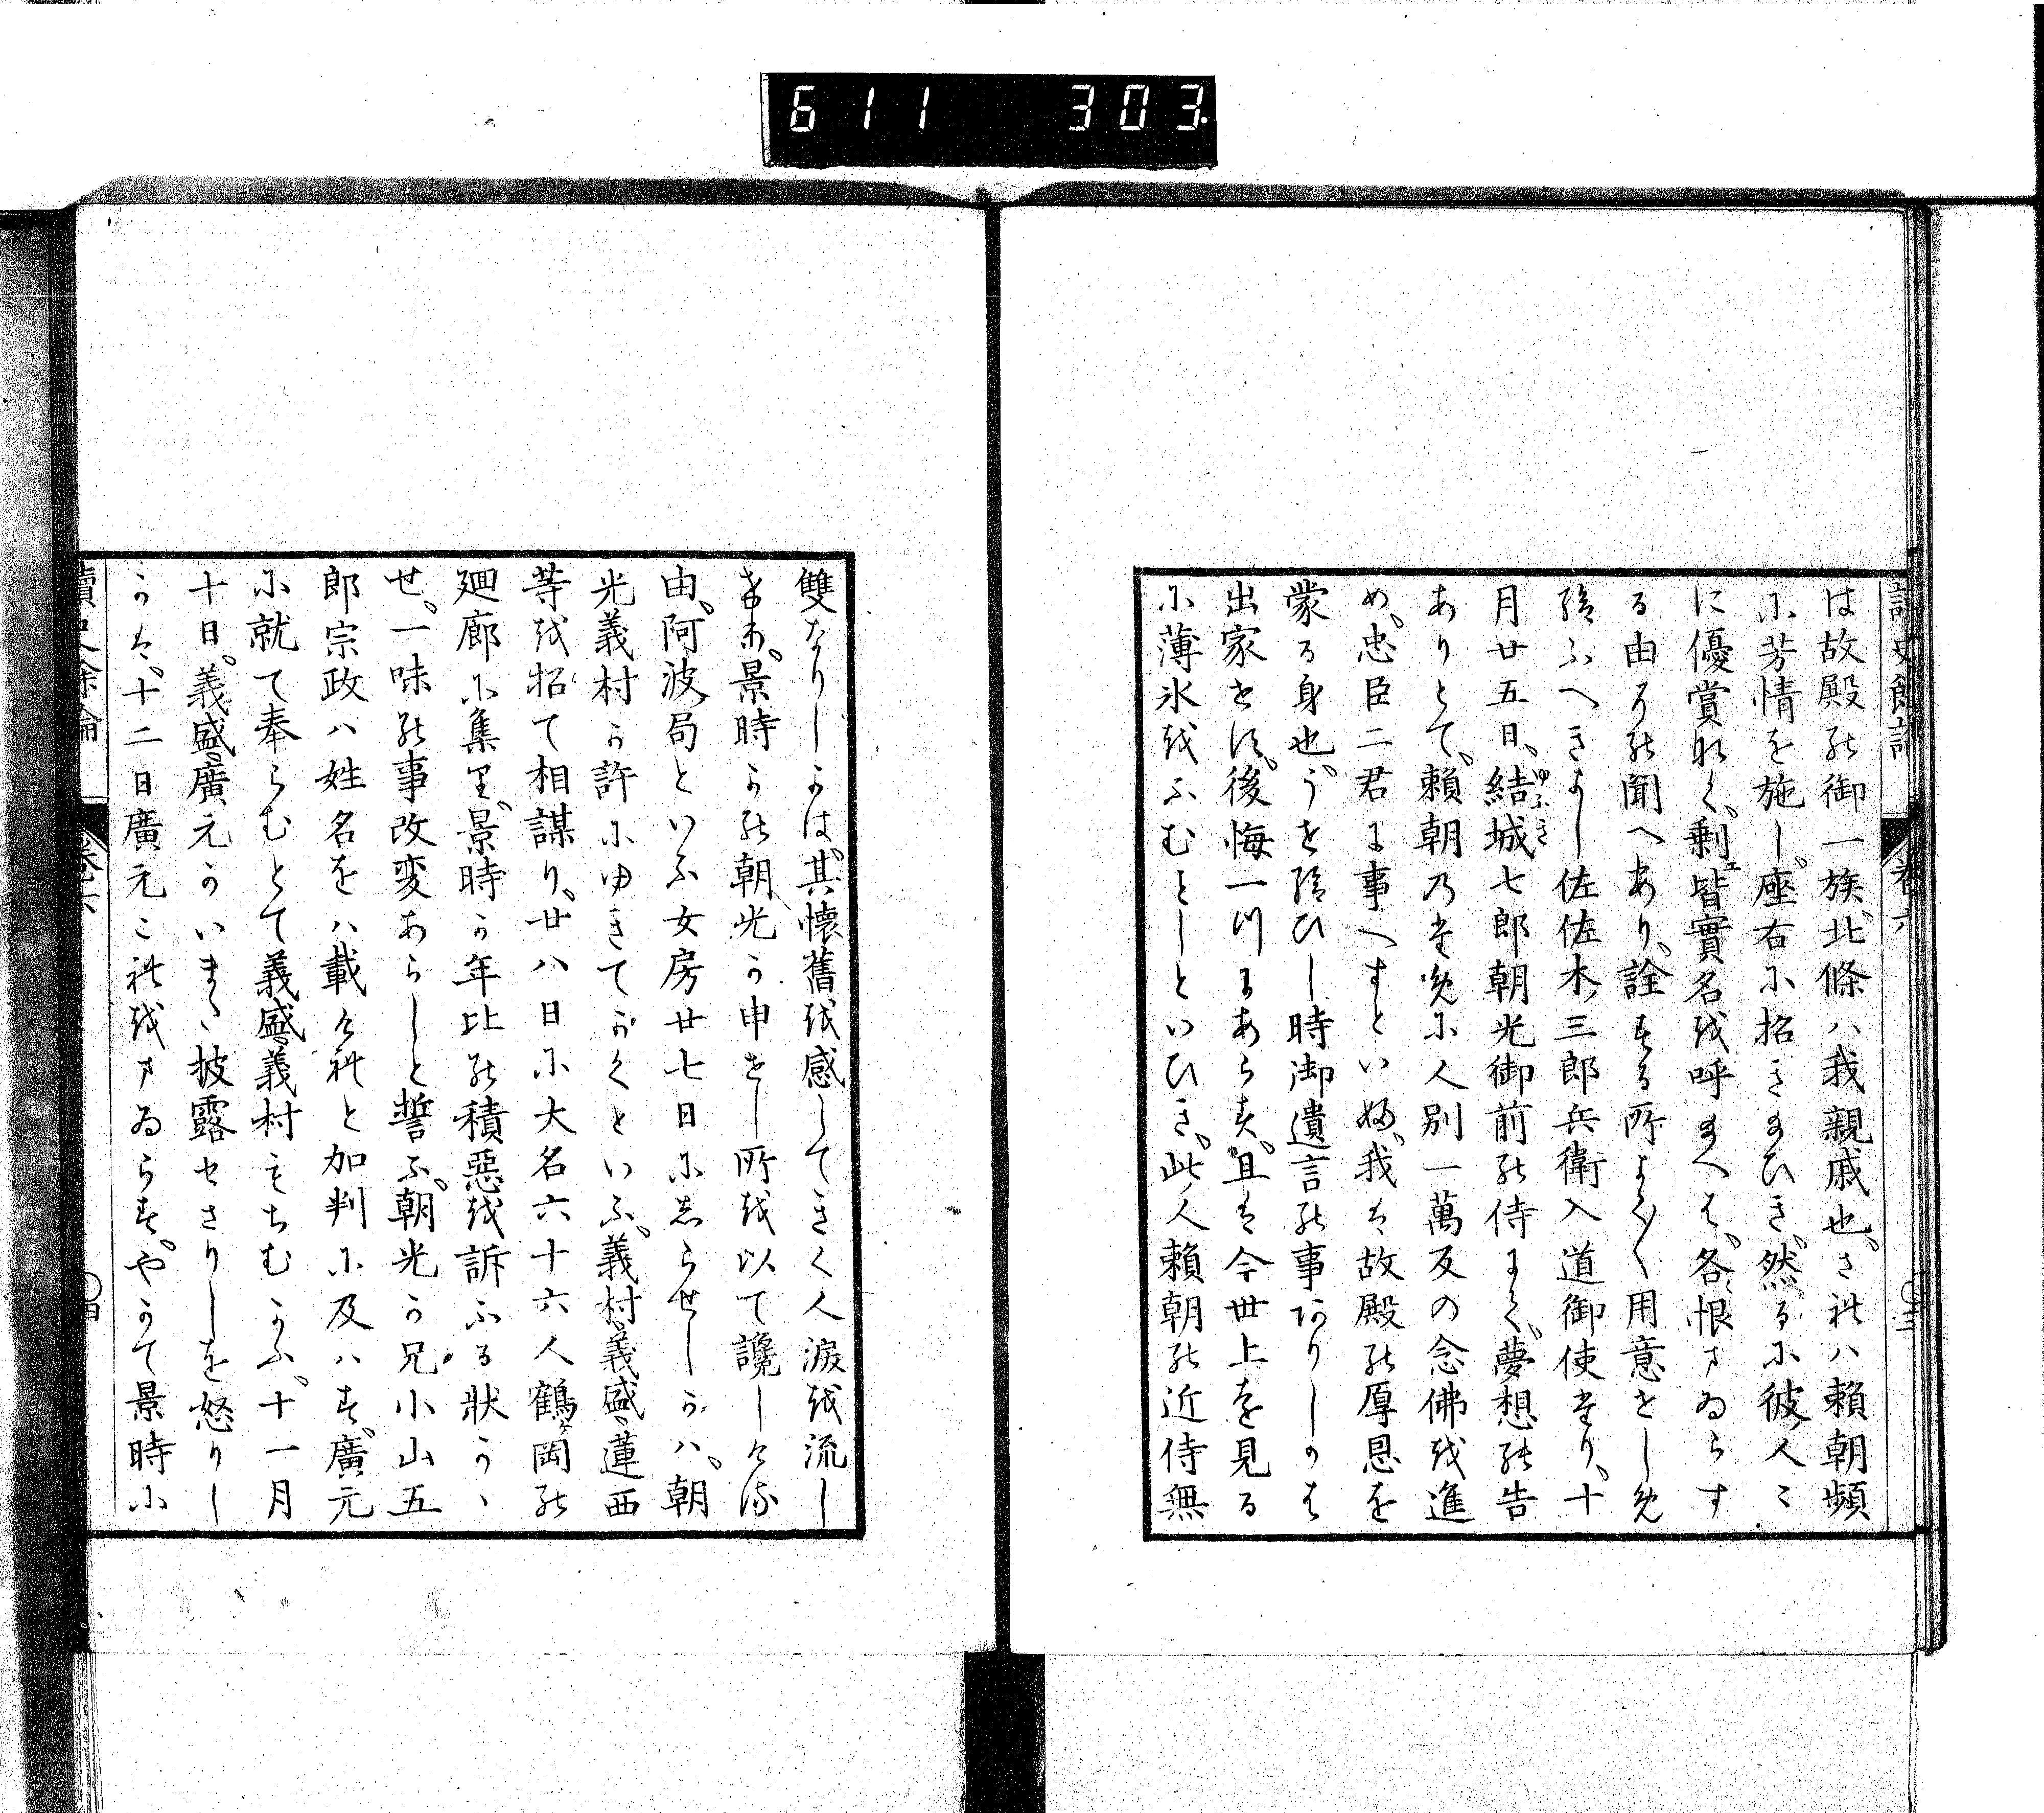 611 303
讀史餘論 卷六 〇三
は故殿の御一族、北條ハ我親戚也、されハ賴朝頻
に芳情を施し、座右に招き給ひき、然るに彼人々
に優賞なく、剩エ皆實名を呼給へは、各恨さゐらす
る由その聞へあり、詮する所よく〱用意をしめ
給ふへきよし佐佐木三郎兵衛入道御使たり、十
月廿五日、結城七郎朝光御前の侍にて、夢想の告
ゆふき
ありとて、賴朝のために人別一萬反の念佛を進
め、忠臣二君に事へすといへ、我は故殿の厚恩を
蒙る身也、うせ給ひし時御遺言の事ありしかは
出家せす、後悔一つにあらす、且は今世上を見る
に薄氷をふむことしといひき、此人賴朝の近侍無
雙なりしかは、其懷舊を感してきく人淚を流し
き、景時かの朝光か申せし所を以て讒しける
由、阿波局といふ女房廿七日にしらせしかハ、朝
光義村か許にゆきてかくといふ、義村、義盛、蓮西
等を招て相謀り、廿八日に大名六十六人鶴ヶ岡の
廻廊に集り、景時か年比の積惡を訴ふる狀かゝ
せ、一味の事改変あらしと誓ふ、朝光か兄小山五
郎宗政ハ姓名をハ載けれと加判に及ハす、廣元
に就て奉らむとて義盛義村もちむかふ、十一月
十日、義盛、廣元かいまた披露せさりしを怒りし
かは、十二日廣元これをまゐらす、やかて景時に
讀史餘論 卷六 〇四